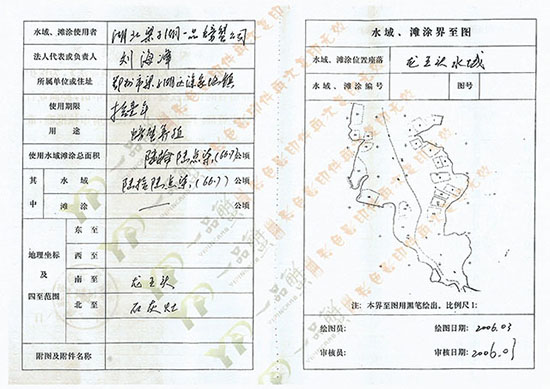 水域、滩涂使用者 湖北梁子湖一品螃蟹公司
法人代表或负责人 刘海峰
所属单位或住址 鄂州市梁子湖区涂家垴镇
使用期限 拾叁年
用途 螃蟹养殖
使用水域滩涂总面积 陆拾陆点柒(66.7)公顷
其中 水域 陆拾陆点柒(66.7)公顷
滩涂 — 公顷
地理坐标及四至范围
东至
西至
南至 龙王头
北至 石灰灶
附图及附件名称
水域、滩涂界至图
水域、滩涂位置座落 龙王头水域
水域、滩涂编号 图号
注:本界至图用黑笔绘出,比例尺1:
绘图员: 绘图日期:2006.03
审核员: 审核日期:2006.03